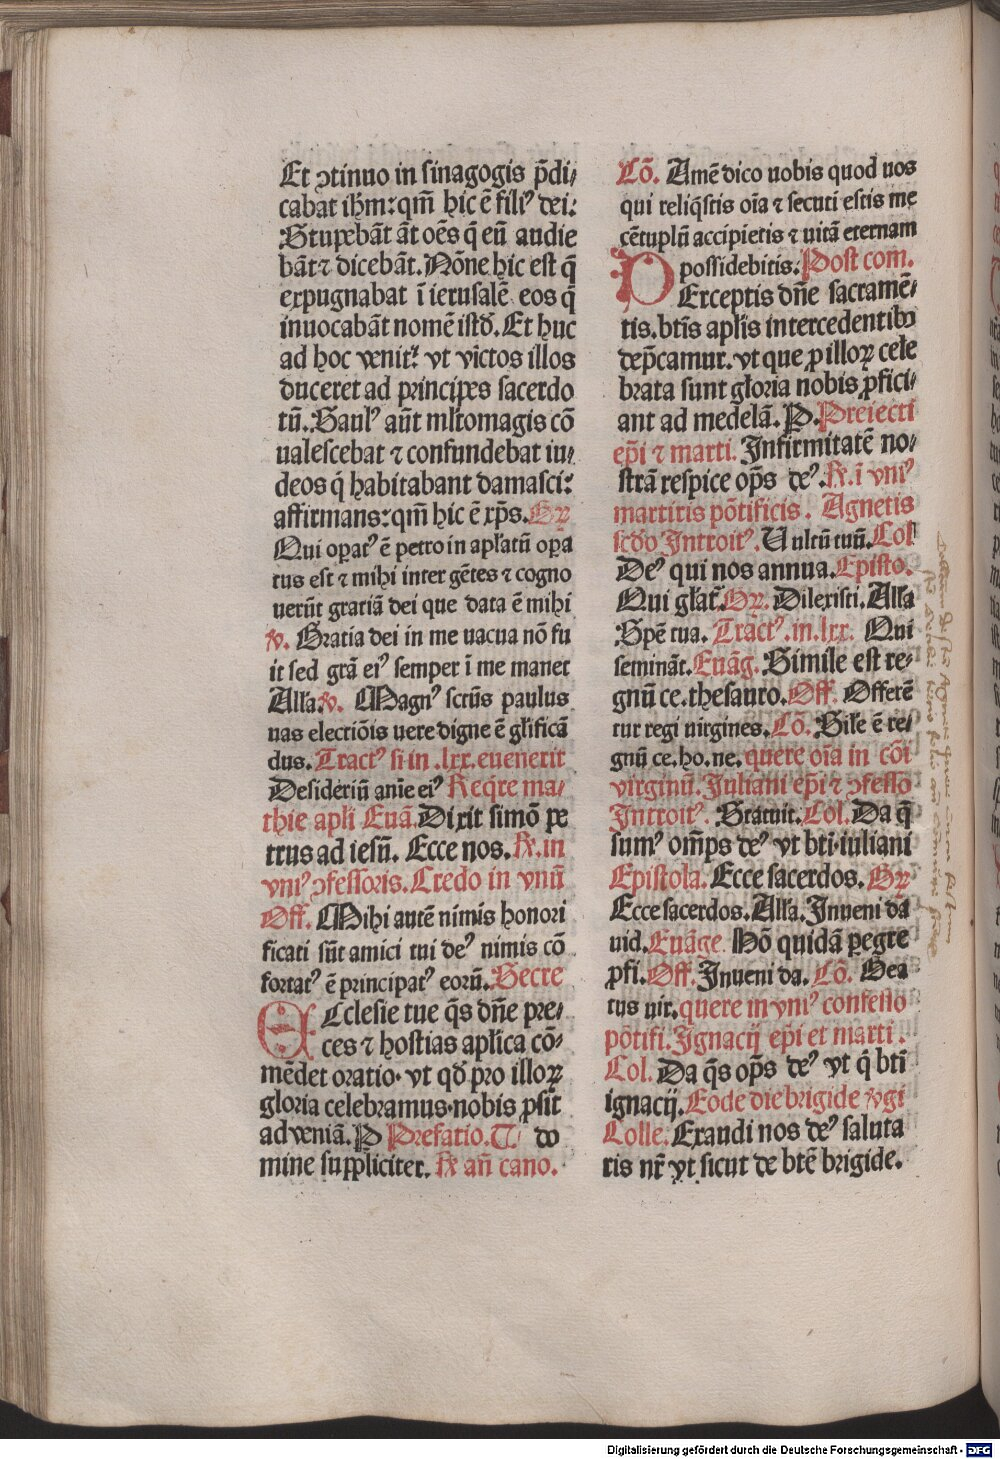 Et ↄtinuo in sinagogis p̄di/
cabat ihm̄: qm̄ hic ē fili⁹ dei:
Stupebāt āt oēs q̄ eū audie
bāt ⁊ dicebāt. Nōne hic est q̄
expugnabat ī ierusalē eos q̄
inuocabāt nomē istđ. Et huc
ad hoc venit: vt victos illos
duceret ad principes sacerdo
tū. Saul⁹ aūt mƚtomagis cō
ualescebat ⁊ confundebat iu/
deos q̄ habitabant damasci:
affirmans: qm̄ hic ē xp̄s. Gꝝ
Qui oꝑat⁹ ē petro in apƚatū oꝑa
tus est ⁊ mihi inter gētes ⁊ cogno
uerūt gratiā dei que data ē mihi
℣. Gratia dei in me uacua nō fu
it sed grā ei⁹ semper ī me manet
Aƚƚa ℣. Magn⁹ sctūs paulus
uas electiōis uere digne ē gƚificā
dus. Tract⁹ si in .lxx. euenerit
Desideriū anīe ei⁹ Req̄re ma/
thie apƚi Euā. Dixit simō pe
trus ad iesū. Ecce nos. ꝶ. in
vni⁹ ↄfessoris. Credo in vnū
Off. Mihi autē nimis honori
ficati sūt amici tui de⁹ nimis cō
fortat⁹ ē principat⁹ eorū. Secre
Ecclesie tue q̄s dn̄e pre/
ces ⁊ hostias apƚica cō/
mēdet oratio· vt qđ pro illoꝝ
gloria celebramus· nobis ꝓsit
ad veniā. P Prefatio. T. do
mine suppliciter. ꝶ añ cano.
Cō. Amē dico uobis quod uos
qui reliq̄stis oīa ⁊ secuti estis me
cētuplū accipietis ⁊ uitā eternam
possidebitis. Post com.
Perceptis dn̄e sacramē/
tis. btīs apƚis intercedentibꝰ
dep̄camur. vt que ꝓ illoꝝ cele
brata sunt gƚoria nobis ꝓfici/
ant ad medelā. P. Preiecti
ep̄i ⁊ marti. Infirmitatē no/
strā respice op̄s de⁹. ꝶ. ī vni⁹
martiris pōtificis. Agnetis
scđo Introit⁹. Uultū tuū. Col
De⁹ qui nos annua. Episto.
Qui gƚat̄. Gꝝ. Dilexisti. Aƚƚa
Spē tua. Tract⁹. in. lxx. Qui
semināt. Euāg. Simile est re/
gnū ce. thesauro. Off. Offerē
tur regi uirgines. Cō. Siƚe ē re/
gnū ce. ho. ne. quere oīa in cōi
virginū. Juliani ep̄i ⁊ ↄfesso
Introit⁹. Statuit. Col. Da q̄
sum⁹ om̄ps de⁹ vt bti· iuliani
Epistola. Ecce sacerdos. Gꝝ
Ecce sacerdos. Aƚƚa. Inueni dā
uid. Euāge. Hō quidā ꝑegre
ꝓfi. Off. Inueni da. Cō. Bea
tus uir. quere in vni⁹ confesso
pōtifi. Ignacij ep̄i et marti.
Col. Da q̄s op̄s de⁹ vt q̄ btī
ignacij. Eodē die brigide v̄gi
Colle. Exaudi nos de⁹ saluta
ris nr̄ vt sicut de btē brigide.
Digitalisierung gefördert durch die Deutsche Forschungsgemeinschaft - DFG